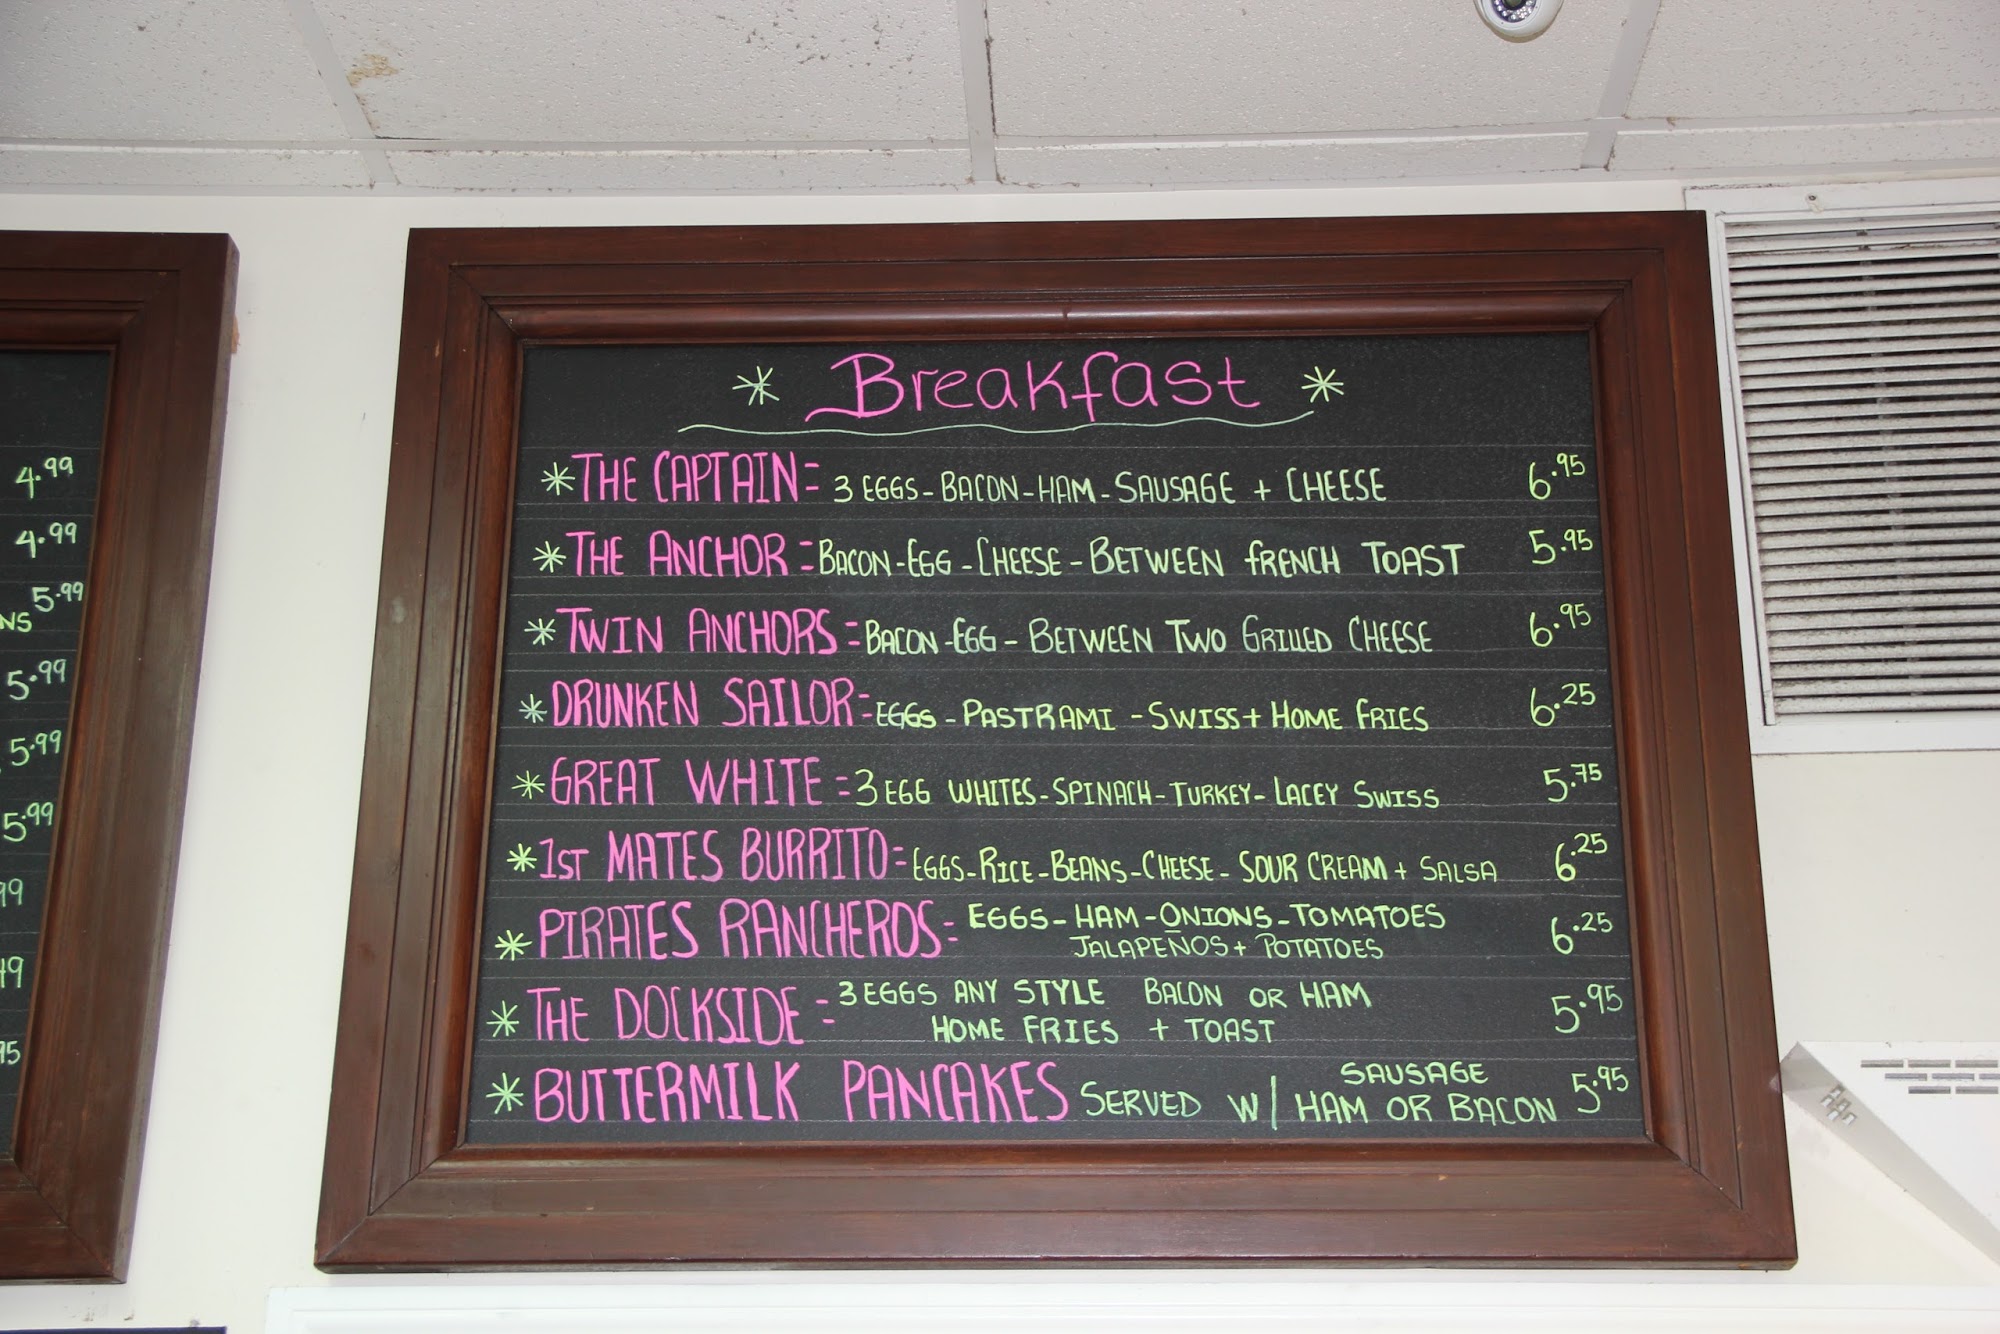 * Breakfast *
* THE CAPTAIN = 3 EGGS - BACON - HAM - SAUSAGE + CHEESE 6.95
* THE ANCHOR = BACON - EGG - CHEESE - BETWEEN FRENCH TOAST 5.95
* TWIN ANCHORS = BACON - EGG - BETWEEN TWO GRILLED CHEESE 6.95
* DRUNKEN SAILOR = EGGS - PASTRAMI - SWISS + HOME FRIES 6.25
* GREAT WHITE = 3 EGG WHITES - SPINACH - TURKEY - LACEY SWISS 5.75
* 1ST MATES BURRITO = EGGS - RICE - BEANS - CHEESE - SOUR CREAM + SALSA 6.25
* PIRATES RANCHEROS = EGGS - HAM - ONIONS - TOMATOES
JALAPEÑOS + POTATOES 6.25
* THE DOCKSIDE = 3 EGGS ANY STYLE BACON OR HAM
HOME FRIES + TOAST 5.95
* BUTTERMILK PANCAKES SERVED W/ SAUSAGE
HAM OR BACON 5.95
4.99
4.99
5.99
NS
5.99
5.99
5.99
99
49
95